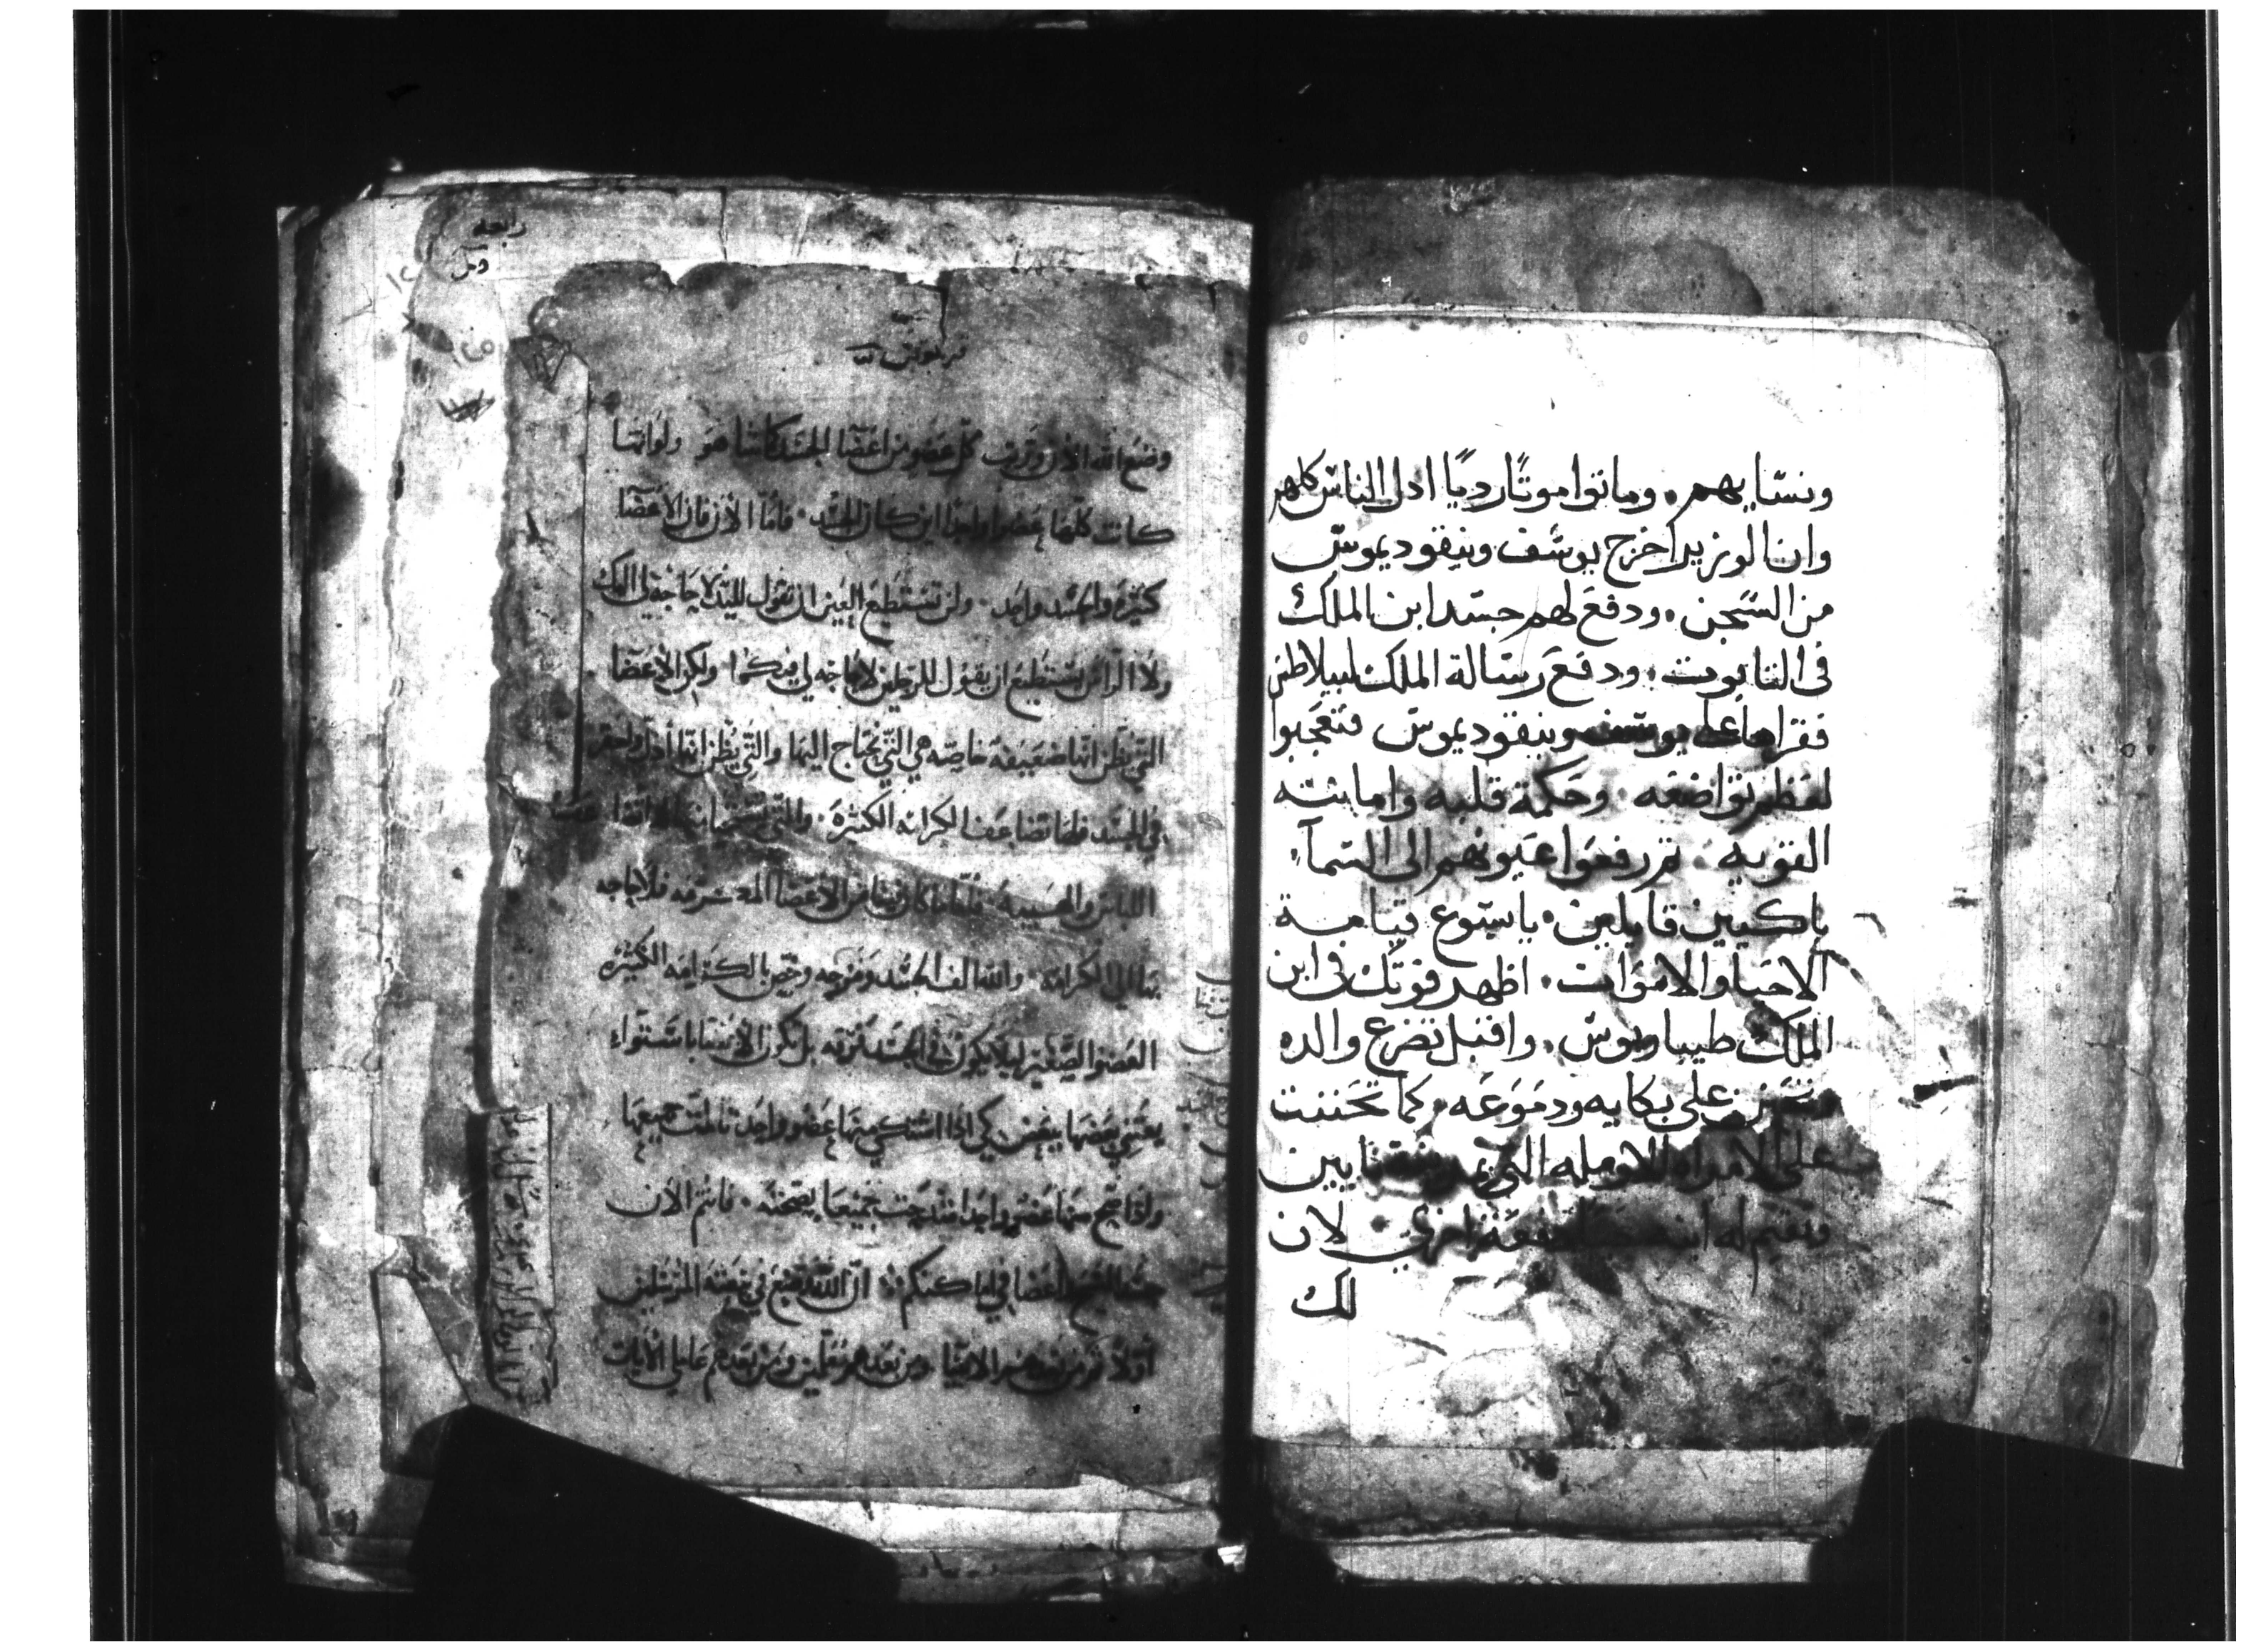 ونسايهم . وماتوا موتًا رديًا اذل الناس كلهم
وان الوزير اخرج يوسف ونيقوديموس
من السجن . ودفع لهم جسد ابن الملك
فى التابوت . ودفع رسالة الملك لبيلاطس
فقراها على يوسف ونيقوديموس فتعجبوا
لعظم تواضعه . وحكمة قلبه وامانته
القويه . ثم رفعوا عيونهم الى السمآء
باكيين قايلين . يا يسوع قيامة
الاحيا والاموات . اظهر قوتك فى ابن
الملك طيباريوس . واقبل تضرع والده
على بكايه ودموعه . كما تحننت
على الامراه الارمله التى نايين
له دفعة اخرى . لان
لك
رابعه
وضع الله الان ورتب كل عضو من اعضا الجسد كما شا هو ولو انها
كانت كلها عضوا واحدا اين كان الجسد . فاما الان فان الاعضا
كثيره والجسد واحد . ولن تستطيع العين ان تقول لليد لا حاجة لى اليك
ولا الراس يستطيع ان يقول للرجلين لا حاجه لى فيكما ولكن الاعضا
التى يظن انها ضعيفه خاصه هى التى نحتاج اليها والتى يظن انها اذل واحقر
فى الجسد فلها تضاعف الكرامه الكثيره . والتى
اللباس والهيبه . فاما ما كان فينا من الاعضا المشرفه فلا حاجه
بها الى الكرامه . والله الف الجسد ومزجه وخص بالكرامه الكثيره
العضو الصغير ليلا يكون فى الجسد فرقه بل تكون الاعضا باستواء
يعتنى بعضها ببعض كى اذا اشتكى منها عضو واحد تالمت جميعها
واذا مدح منها عضو واحد امتدحت جميعا بصحته . فانتم الان
جسد المسيح واعضا فى اماكنكم . ان الله وضع فى بيعته المرسلين
اولا ثم من بعدهم الانبيا ومن بعدهم معلمين ومن بعدهم عاملى الايات